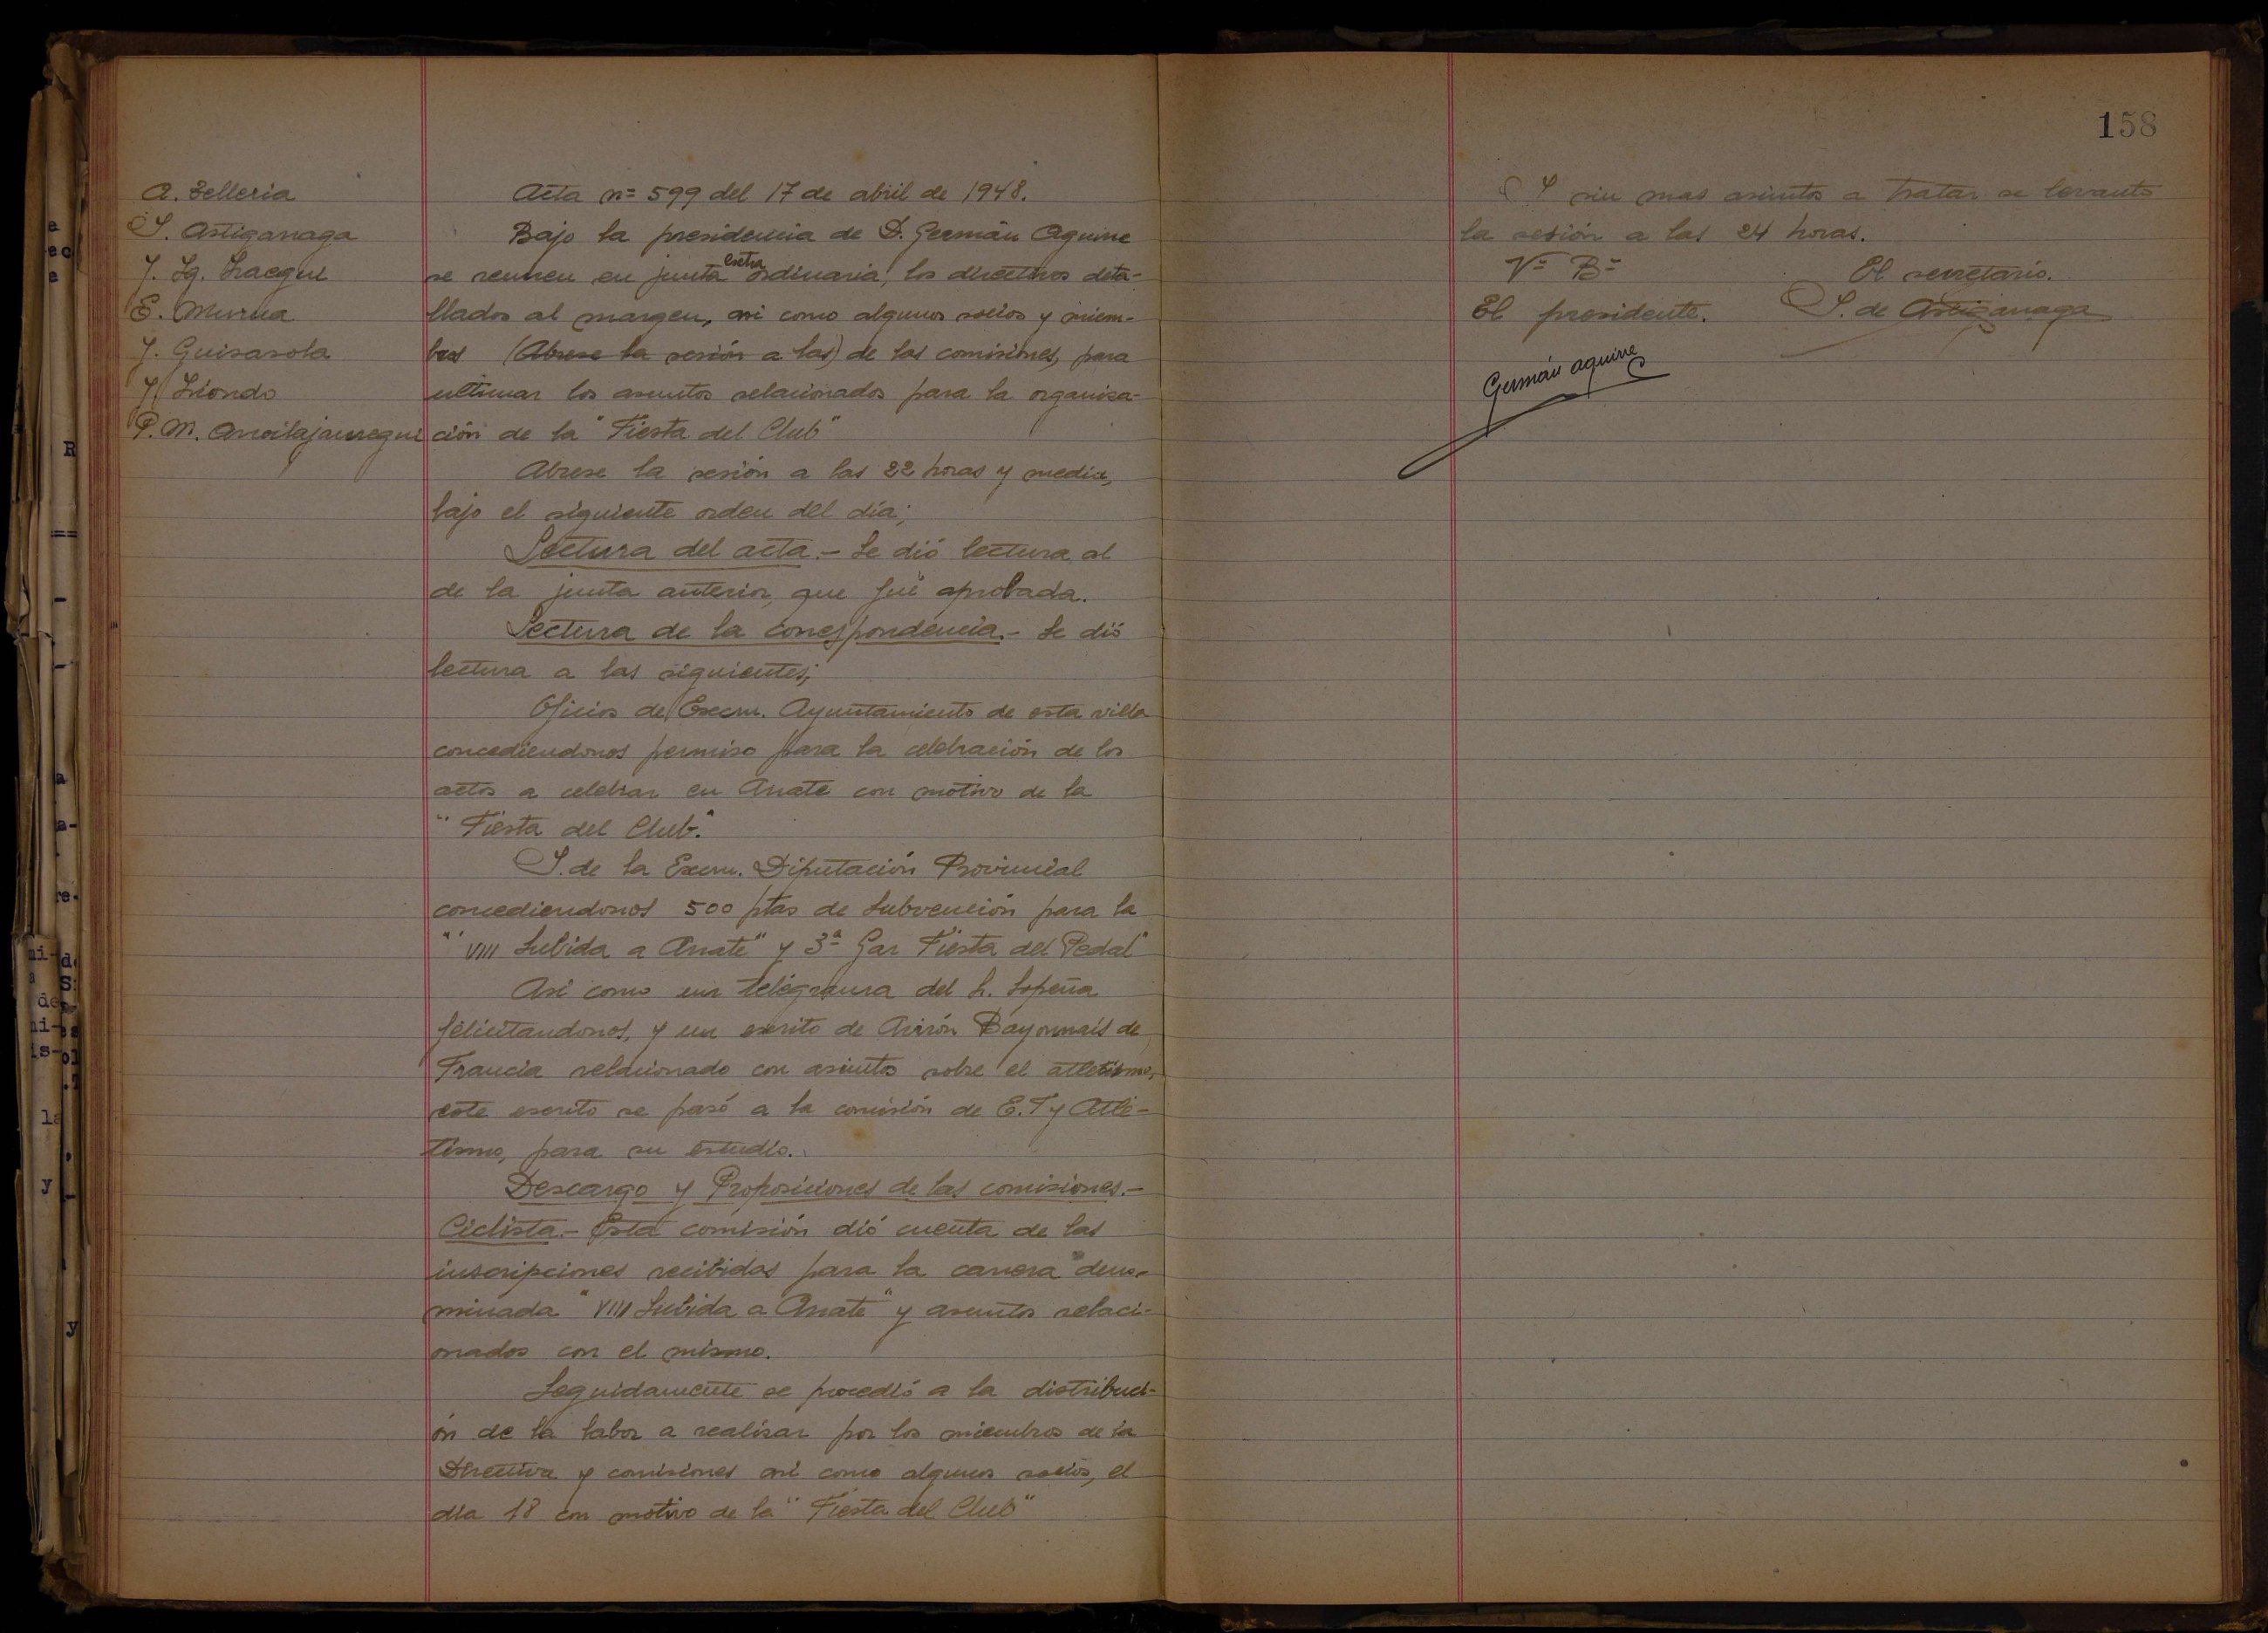 A. Zelleria
I. Astiganaga
J. Ig. Iraegui
E. Murua
J. Guisasola
J. Liondo
P. M. Arroitajauregui
Acta nº 599 del 17 de abril de 1948.
Bajo la presidencia de D. Germán Aguirre
se reunen en junta extra ordinaria, los directivos deta-
llados al margen, asi como algunos socios y miem-
bros (Abrese la sesión a las) de las comisiones, para
ultimar los asuntos relacionados para la organiza-
ción de la "Fiesta del Club"
Abrese la sesión a las 22 horas y media,
bajo el siguiente orden del día;
Lectura del acta.- Se dió lectura al
de la junta anterior, que fué aprobada.
Lectura de la correspondencia.- Se dió
lectura a las siguientes;
Oficios de Excm. Ayuntamiento de esta villa
concediendonos permiso para la celebración de los
actos a celebrar en Arrate con motivo de la
"Fiesta del Club."
I. de la Excm. Diputación Provincial
concediendonos 500 ptas de Subvención para la
"VIII Subida a Arrate" y 3ª Gar Fiesta del Pedal"
Asi como un telégrama del S. Sopeña
félicitandonos, y un escrito de Avirón Bayonnais de
Francia relacionado con asuntos sobre el atletismo,
este escrito se pasó a la comisión de E. T y Atle-
tismo, para su estudio.
Descargo y Proposiciones de las comisiones.-
Ciclista.- Esta comisión dió cuenta de las
inscripciones recibidas para la carrera deno-
minada "VIII Subida a Arrate" y asuntos relaci-
onados con el mismo.
Seguidamente se procedió a la distribuci-
ón de la labor a realizar por los miembros de la
Directiva y comisiones asi como algunos socios, el
dia 18 con motivo de la "Fiesta del Club"
158
Y sin mas asuntos a tratar se levanto
la sesión a las 24 horas.
Vº Bº El secretario.
El presidente. I. de Astiganaga
Germán Aguirre